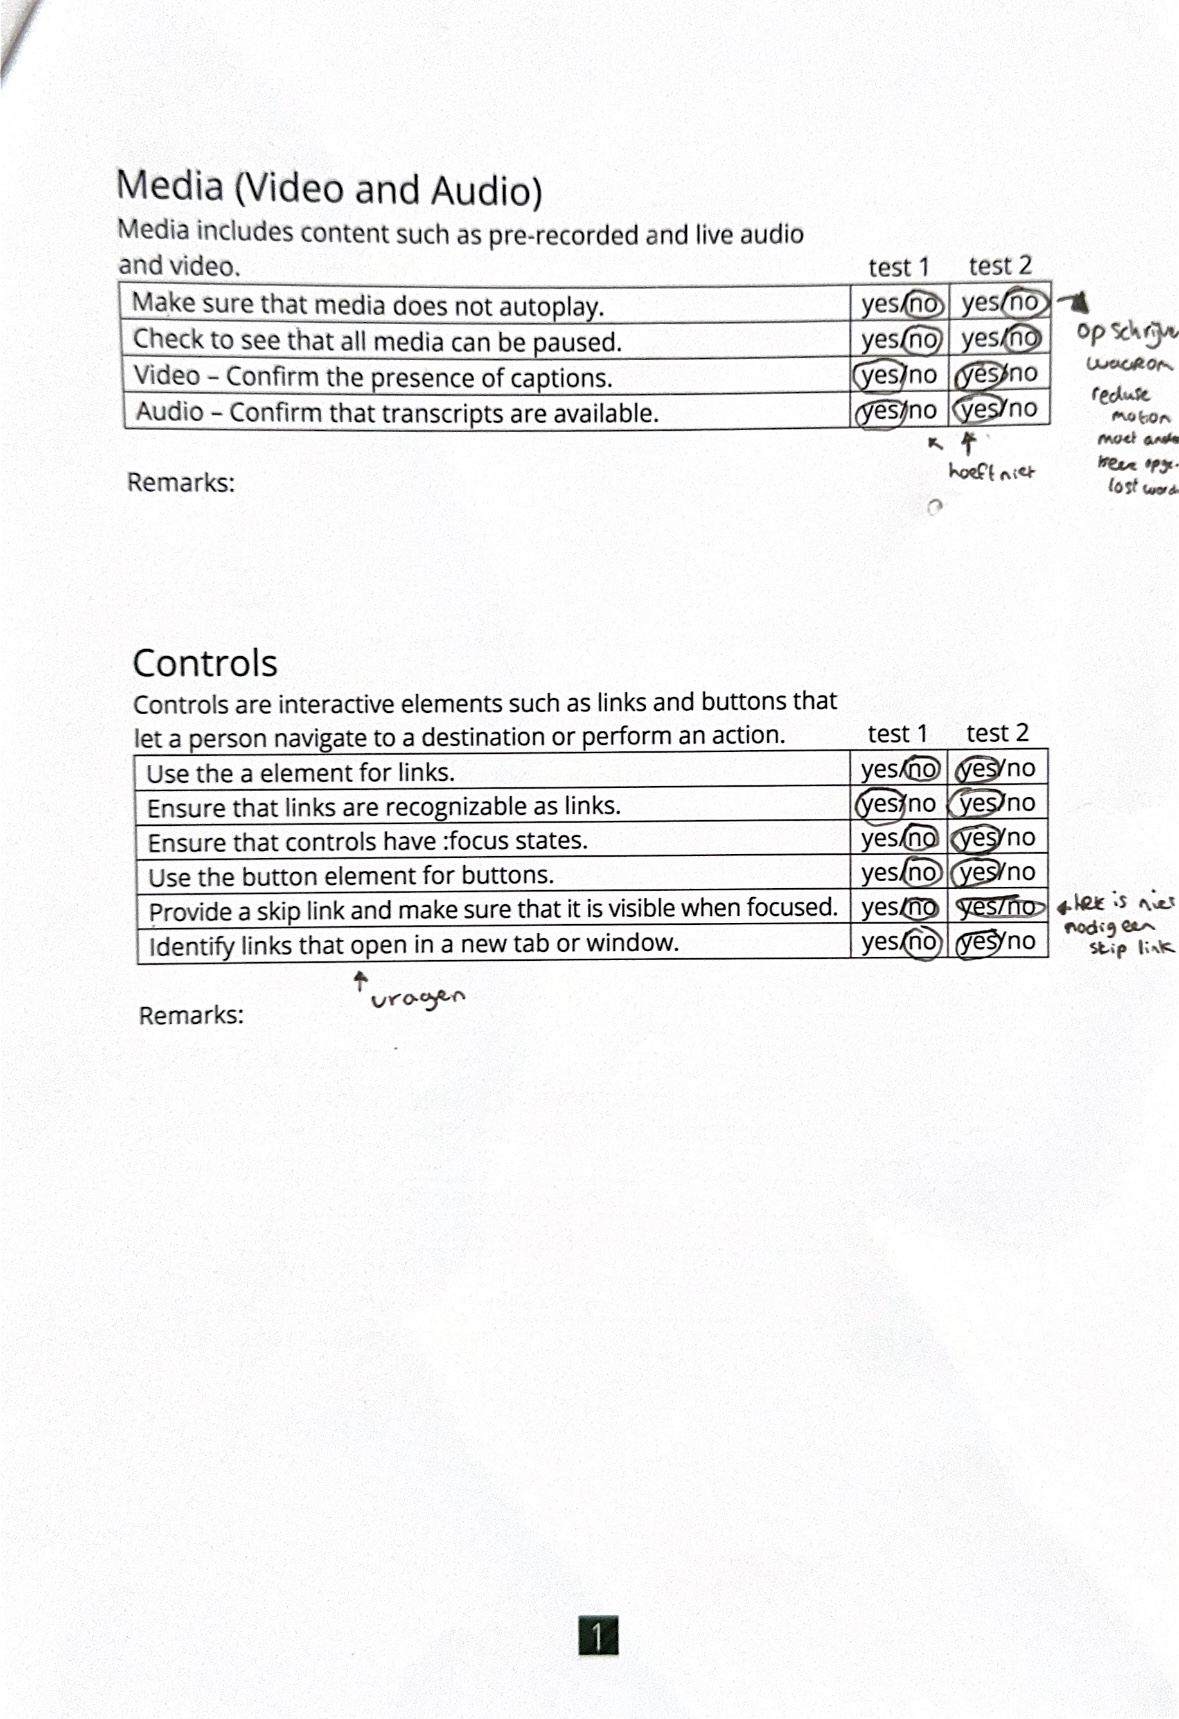 Media (Video and Audio)
Media includes content such as pre-recorded and live audio
and video. test 1 test 2
Make sure that media does not autoplay. yes/no yes/no
Check to see that all media can be paused. yes/no yes/no
Video – Confirm the presence of captions. yes/no yes/no
Audio – Confirm that transcripts are available. yes/no yes/no
op schrijve
waarom
reduse
motion
moet
opge-
lost word
hoeft niet
Remarks:
Controls
Controls are interactive elements such as links and buttons that
let a person navigate to a destination or perform an action. test 1 test 2
Use the a element for links. yes/no yes/no
Ensure that links are recognizable as links. yes/no yes/no
Ensure that controls have :focus states. yes/no yes/no
Use the button element for buttons. yes/no yes/no
Provide a skip link and make sure that it is visible when focused. yes/no yes/no
Identify links that open in a new tab or window. yes/no yes/no
het is niet
nodig een
skip link
vragen
Remarks:
1